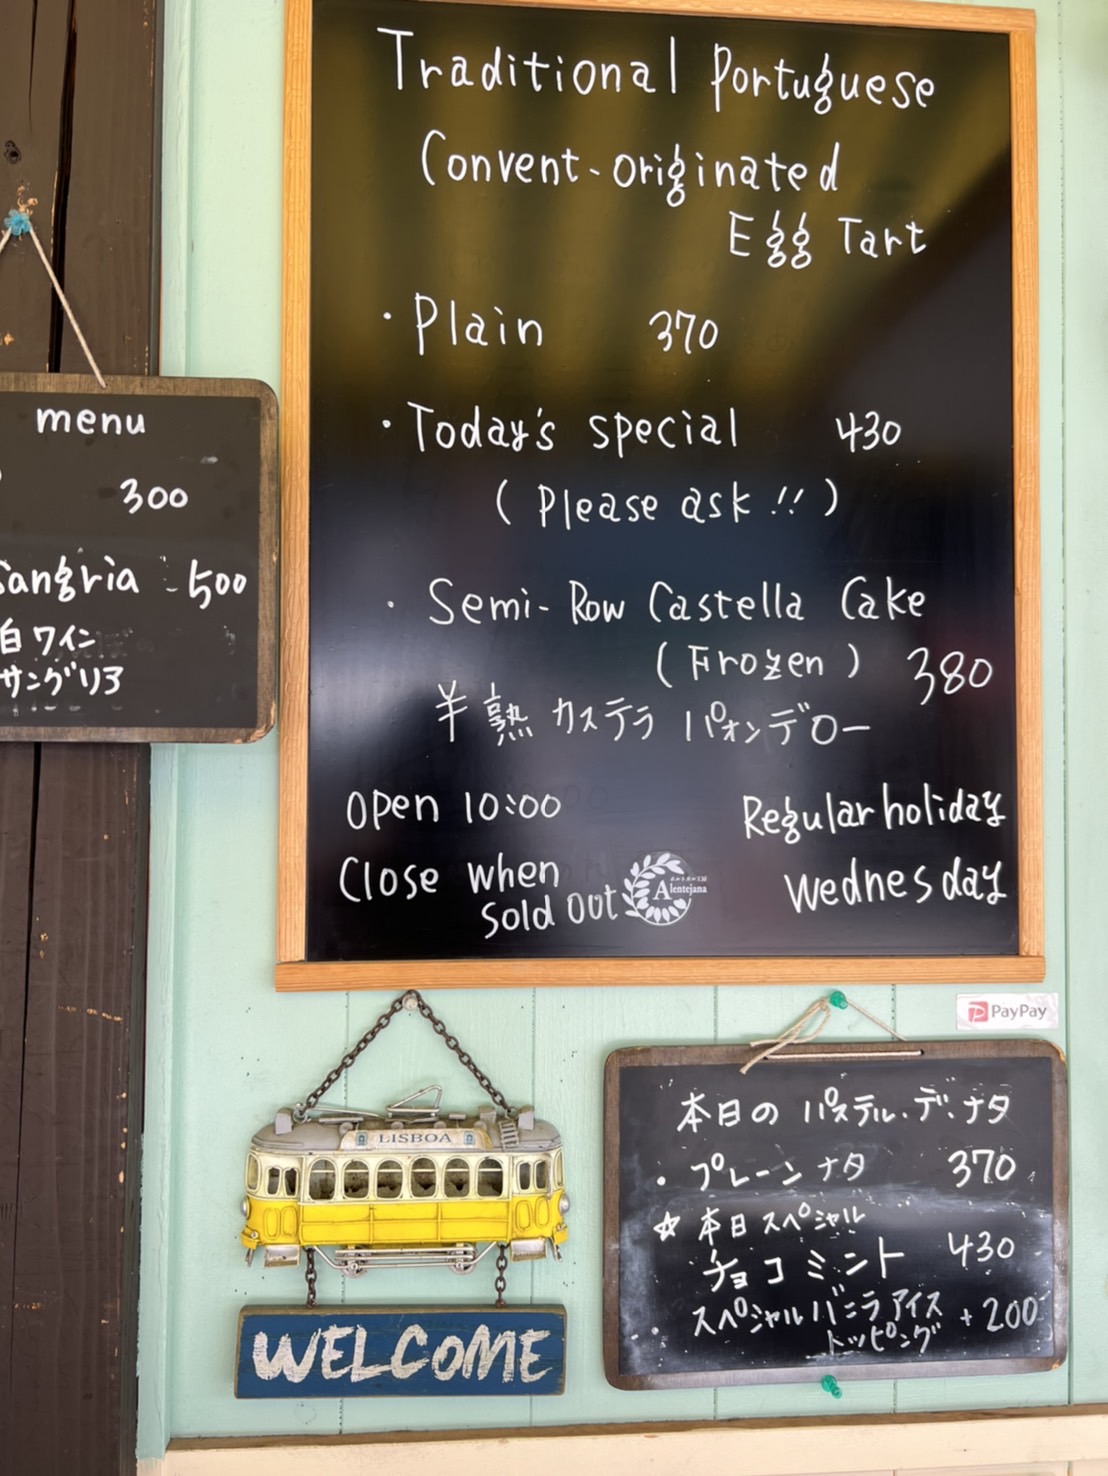 Traditional Portuguese
Convent-originated
Egg Tart
・Plain 370
・Today's special 430
( Please ask !! )
・Semi-Row Castella Cake
( Frozen ) 380
半熟 カステラ パォンデロー
Open 10:00
Close when
sold out
Alentejana
Regular holiday
Wednesday
menu
300
Sangria - 500
白ワイン
サングリア
LISBOA
WELCOME
PayPay
本日の パステル・デ・ナタ
・プレーンナタ 370
☆ 本日スペシャル
チョコミント 430
・スペシャルバニラアイス
トッピング +200